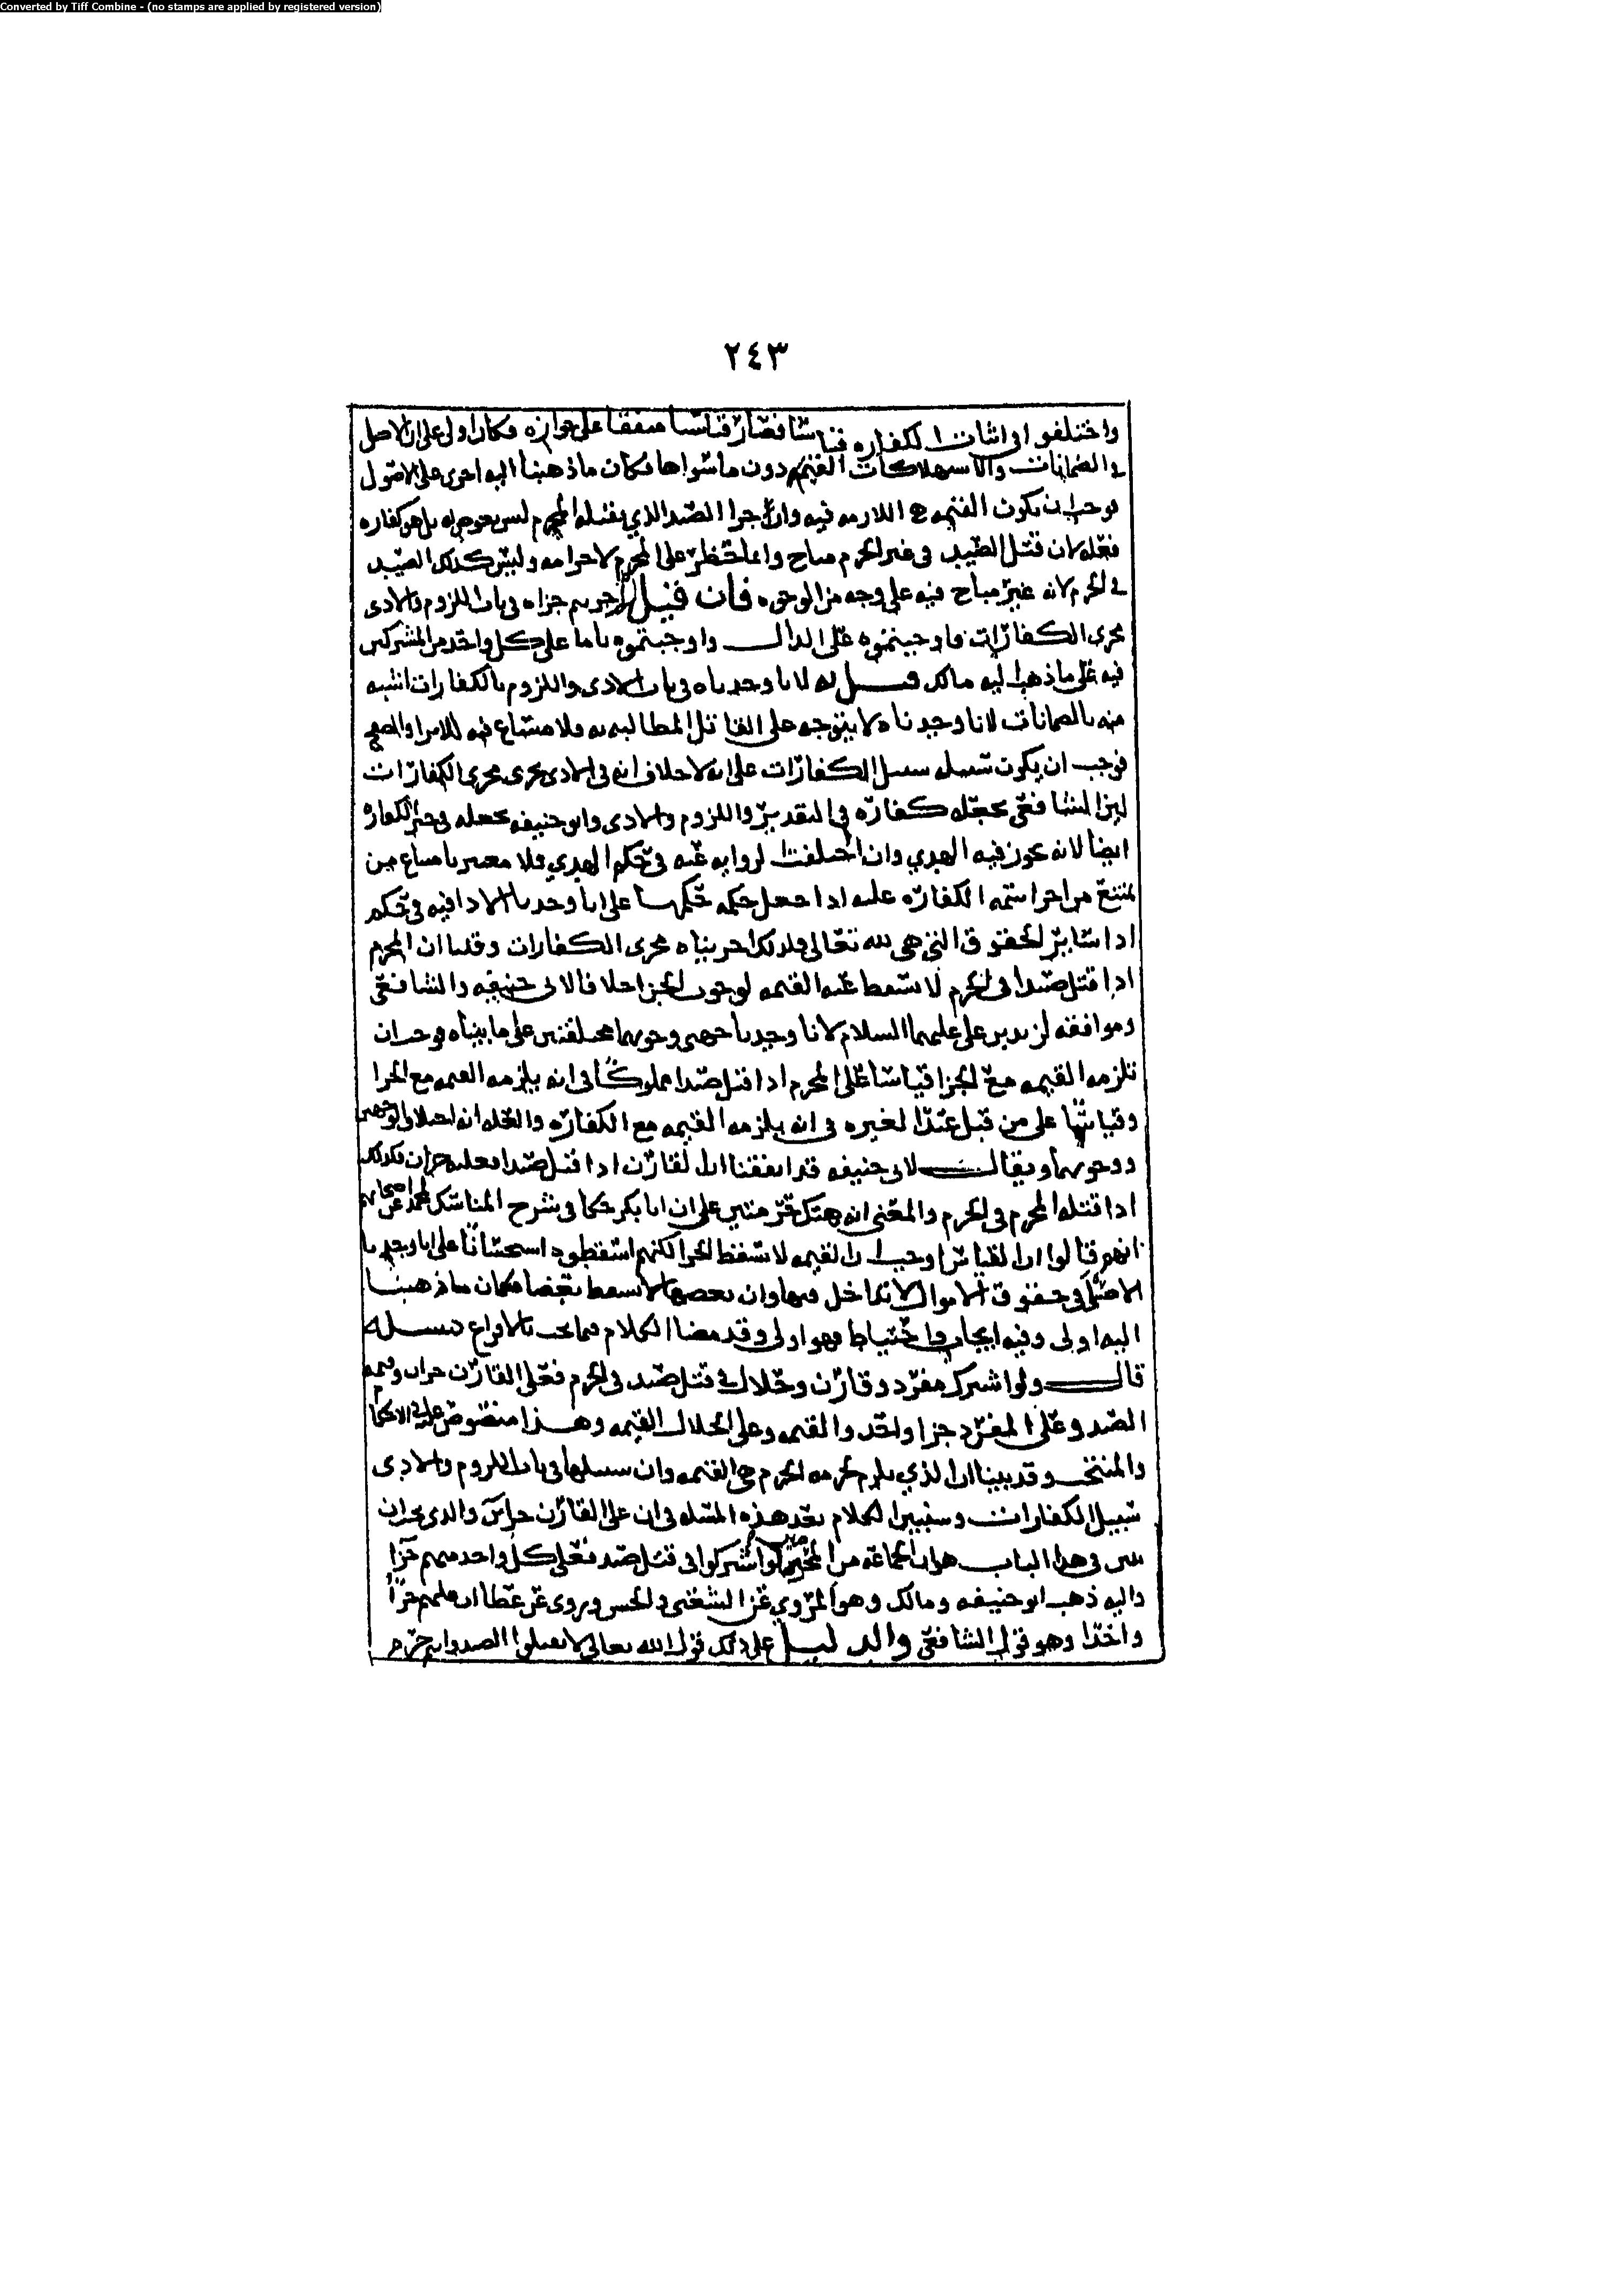 Converted by Tiff Combine - (no stamps are applied by registered version)
٢٤٣
واختلفوا في اثبات الكفاره قياسا فصار قياسنا متفقا على جوازه فكان اولى على ان الاصل
في الضمانات والاستهلاكات القيم دون ما سواها فكان ما ذهبنا اليه اجرى على الاصول
فوجب ان تكون القيمه هي اللازمه فيه وان جزا الصيد الذي يقتله المحرم ليس بعوض له بل هو كفاره
فعله لان قتل الصيد في غير الحرم مباح وانما حظر على المحرم لاحرامه وليس كذلك الصيد
في الحرم لانه غير مباح فيه على وجه من الوجوه فان قيل اجريتم جزاه في باب اللزوم والادى
مجرى الكفارات فاوجبتموه على الدال واوجبتموه تاما على كل واحد من المشتركين
فيه على ما ذهب اليه مالك قيل له لانا وجدناه في باب الادى واللزوم بالكفارات اشبه
منه بالضمانات لانا وجدناه لا يتوجه على القاتل المطالبه به ولا مساغ فيه للابرا والصلح
فوجب ان يكون سبيله سبيل الكفارات على انه لا خلاف انه في الادى يجرى مجرى الكفارات
لان الشافعي يجعله كفاره في التقدير واللزوم والادى وابو حنيفه يجعله في حيز الكفاره
ايضا لانه يجوز فيه الهدي وان اختلفت الروايه عنه في حكم الهدي ولا معتبر بامتناع من
يمتنع من اجرا اسم الكفاره عليه اذا جعل حكمه حكمها على انا وجدنا الادا فيه في حكم
ادا ساير الحقوق التي هي لله تعالى فلذلك اجريناه مجرى الكفارات وقلنا ان المحرم
اذا قتل صيدا في الحرم لا تسقط عنه القيمه لوجوب الجزا خلافا لابي حنيفه والشافعي
وموافقه لزيد بن علي عليهما السلام لانا وجدنا جهتي وجوبهما مختلفتين على ما بيناه فوجب ان
تلزمه القيمه مع الجزا قياسا على المحرم اذا قتل صيدا مملوكا في انه يلزمه القيمه مع الجزا
وقياسا على من قتل عبدا لغيره في انه يلزمه القيمه مع الكفاره والعله انه اختلاف الوجهين
ووجوبهما ويقال لابي حنيفه قد اتفقنا ان القارن اذا قتل صيدا فعليه جزان فكذلك
اذا قتله المحرم في الحرم والمعنى انه هتك حرمتين على ان ابا بكر حكا في شرح المناسك لمحمد عن اصحابهم
انهم قالوا ان القياس اوجب ان القيمه لا تسقط الجزا لكنهم اسقطوه استحسانا على انا وجدنا
الاصل في حقوق الاموال لا تداخل فيها وان بعضها لا يسقط بعضا فكان ما ذهبنا
اليه اولى وفيه ايجاب واحتياط فهو اولى وقد مضا الكلام فيما يجب بالافزاع مسله
قال ولو اشترك مفرد وقارن وحلال في قتل صيد في الحرم فعلى القارن جزان وقيمه
الصيد وعلى المفرد جزا واحد والقيمه وعلى الحلال القيمه وهذا منصوص عليه في الاحكام
والمنتخب وقد بينا ان الذي يلزم لحرمه الحرم هي القيمه وان سبيلها في باب اللزوم والادى
سبيل الكفارات وسنبين الكلام بعد هذه المسله في ان على القارن جزاين والذي يجب ان
نبين في هذا الباب هو ان الجماعه من المحرمين لو اشتركوا في قتل صيد فعلى كل واحد منهم جزا
واليه ذهب ابو حنيفه ومالك وهو المروي عن الشعبي والحسن وروى عن عطا ان عليهم جزا
واحدا وهو قول الشافعي والدليل على ذلك قول الله تعالى لا تقتلوا الصيد وانتم حرم